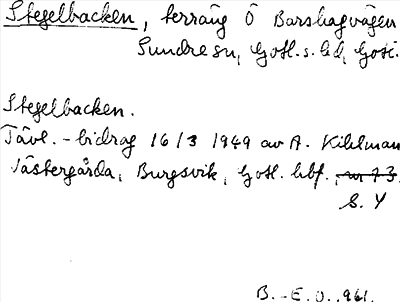 Stegelbacken, terräng Ö Barshagvägen
Sundre sn, Gotl. s. hd, Gotl.
Stegelbacken.
Tävl.-bidrag 16/3 1949 av A. Kihlman
Västergårda, Burgsvik, Gotl.
S. Y
B. - E. O. 961.